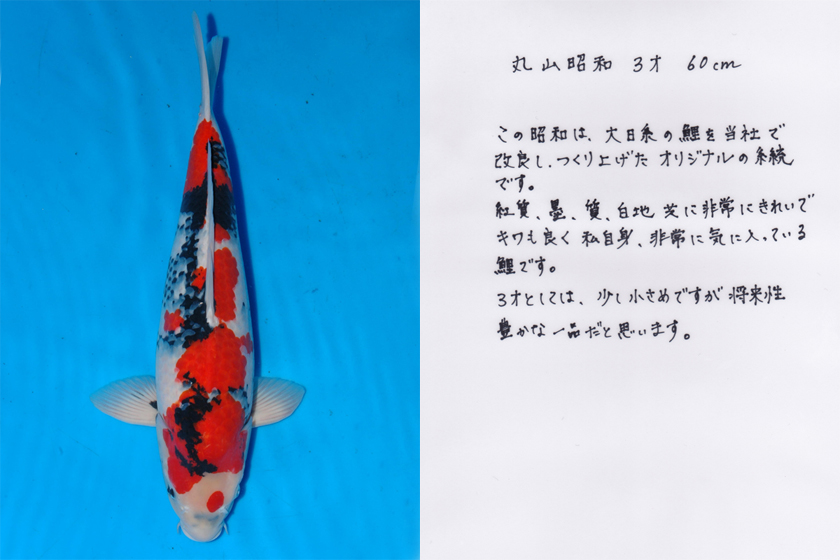 丸山昭和 3才 60cm
この昭和は、大日系の鯉を当社で
改良し、つくり上げた オリジナルの系統
です。
紅質、墨、質、白地 共に非常にきれいで
キワも良く 私自身、非常に気に入っている
鯉です。
3才としては、少し小さめですが 将来性
豊かな一品だと思います。